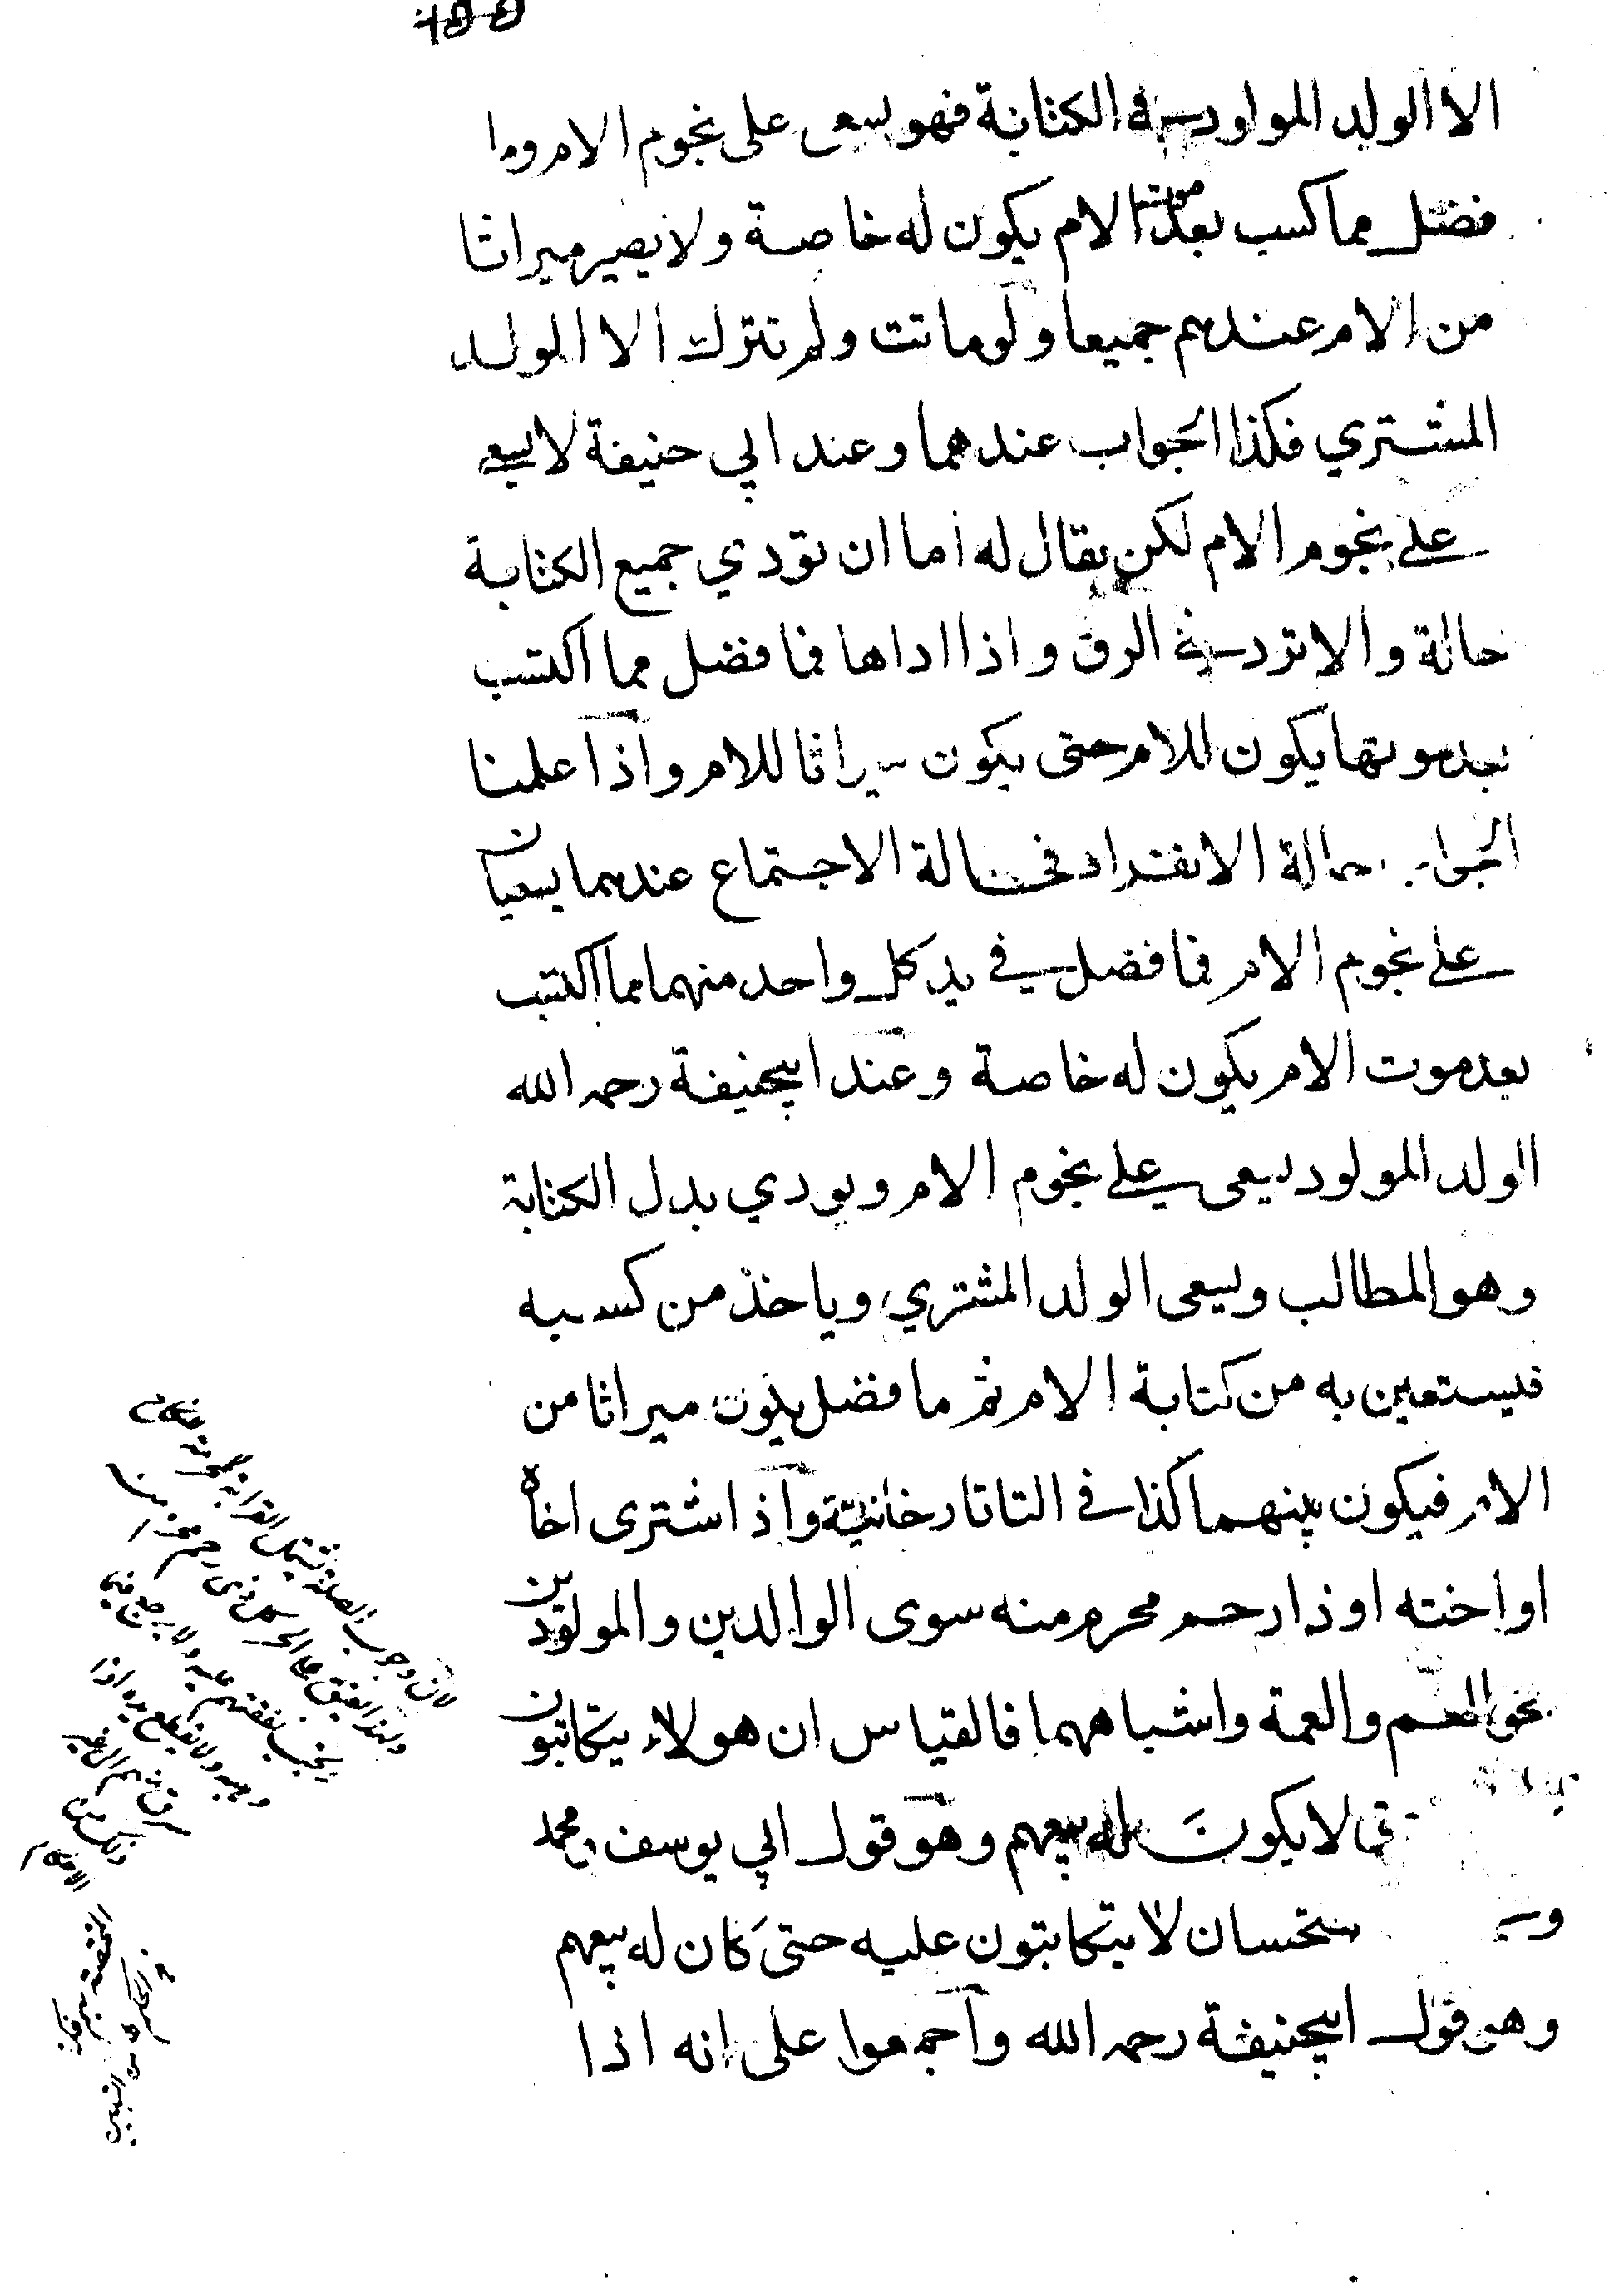 الا الولد المولود في الكتابة فهو يسعى على نجوم الام وما
فضل مما كسب بعد موت الام يكون له خاصة ولا يصير ميراثا
من الام عندهم جميعا ولو ماتت ولم تترك الا الولد
المشتري فكذا الجواب عندهما وعند ابي حنيفة لا يسعى
على نجوم الام لكن يقال له اما ان تودي جميع الكتابة
حالة والا ترد في الرق واذا اداها فما فضل مما اكتسب
بعد موتها يكون للام حتى يكون ميراثا للام واذا علمنا
الجواب حالة الانفراد فحالة الاجتماع عندهما يسعيان
على نجوم الام فما فضل في يد كل واحد منهما مما اكتسب
بعد موت الام يكون له خاصة وعند ابيحنيفة رحمه الله
الولد المولود يسعى على نجوم الام ويودي بدل الكتابة
وهو المطالب ويسعى الولد المشتري وياخذ من كسبه
فيستعين به من كتابة الام ثم ما فضل يكون ميراثا من
الام فيكون بينهما كذا في التاتارخانية واذا اشترى اخاه
او اخته او ذا رحم محرم منه سوى الوالدين والمولودين
نحو العم والعمة واشباههما فالقياس ان هولاء يتكاتبون
لا يكون له بيعهم وهو قول ابي يوسف ومحمد
لا يتكاتبون عليه حتى كان له بيعهم
وهو قول ابيحنيفة رحمه الله واجمعوا على انه اذا
لان وجوب الصلة تشتمل القرابة